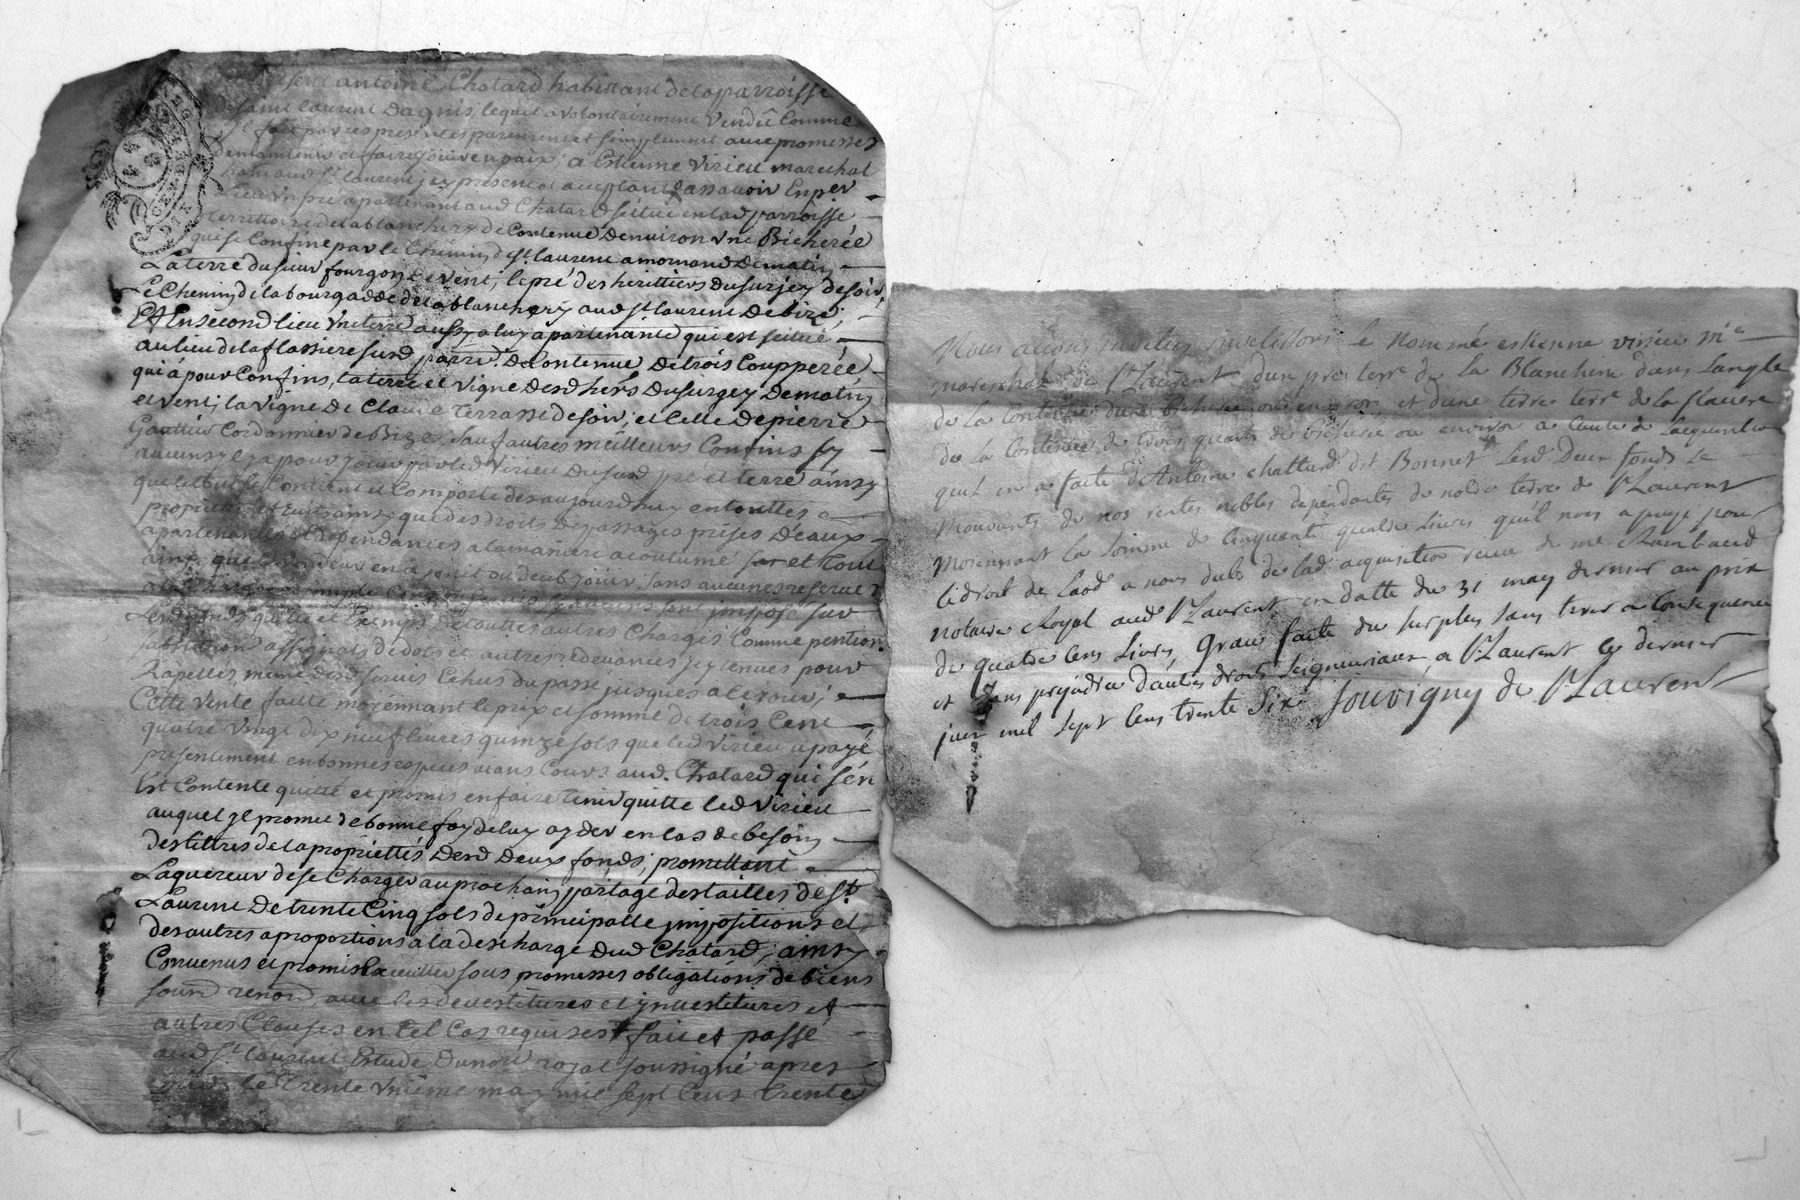 antoine Chatard habittant de la parroisse
de saint laurent Dagnis, lequel a volontairement Vendu Comme
Il fait par ces presentes purement et simplement avec promesses
De maintenir et faire jouir en paix, a Estienne Virieu marechal
aud st. laurent jcy present et acceptant assavoir En per
lieu Vn pré apartenant aud Chatard scittué en lad parroisse
territtoire de la blanchery de Contenue Denuiron vne Bicherée
qui se Confine par le Chemin de st. laurent a mornand De matin
La terre du sieur fourgon de vent; le pré des herittiers du surjey de soir,
Le Chemin de la bourgadde de la blanchery aud st laurent De bize;
Et En second lieu Vne terre aussy a luy apartenante qui est scitué
au lieu de la flassiere susd parre. De Contenue De trois Coupperée
qui a pour Confins, la terre et vigne desd hers Du surgey De matin
et vent; la vigne de Claude Terrasse de soir; et Celle De pierre
Gauttier Cordonnier de Bize, sauf autres meilleurs Confins sy
aucuns jl y a pour jouir par led Virieu Du susd pré et terre ainsy
que le tout se Contient et Comporte des aujourdhuy en touttes
propriettés et ainsy que des droits De passages prises D'eaux
apartenances et dependances a la maniere acoutumé et tout
ainsy que le vendeur en a jouit ou deub jouir sans aucunes reserues
sont jmposé sur
Lesd fonds quitte et Exempts De touttes autres Charges Comme pention
fondation assignats de dots et autres redevances jcy tenues pour
Rapellés, meme desd seruis Echus du passé jusques a Ce jour;
Cette vente faitte moyennant le prix et somme de trois Cent
quatre vingt dix neuf liures quinze sols que led Virieu a payé
presentement en bonnes especes aians Cours aud. Chatard qui s'en
Est Contente quitté et promis en faire tenir quitte led Virieu
auquel jl promet de bonne foy de luy ayder en cas de besoin
des tittres de la propriettés Desd Deux fonds; promettant
Laquereur de se Charger au prochain partage des tailles de st.
Laurent De trente Cinq sols de principalle jmpositions et
des autres a proportions a la descharge Dud Chatard; ainsy
Conuenus et promis Executter sous promesses obligations de biens
soum renon, avec les devestitures et jnuestitures et
autres Clauses en tel Cas requises fait et passé
aud st laurent Estude Du nore. royal soussigné apres
midy le Trente Vnieme may mil sept Cens trente
Nous auons jnvestis le nommé estienne virieu me
mareschal de St Laurent dun pré terre. de la Blancherie dans Langle
de la Contenue dune Bicherée ou environ et d'une terre terre. de la flaciere
de la Contenue de trois quarts de bicherée ou environ a Cause de Lacquisition
quil en a faite d'Antoine chattard dit Bonnet Lesd Deux fonds se
mouvants de nos rentes nobles dependantes de notre terre de St Laurent
moiennant la somme de Cinquante quatre Livres qu'il nous a payé pour
le droit de Laod a nous dubs de lad acquisition reçue de me Rambaud
notaire Royal aud St Laurent en datte du 31 may dernier au prix
de quatre Cens Livres, Grace faite du surplus sans tirer a Consequence
et sans prejudice d'autres droits seigneuriaux, a St Laurent ce dernier
juin mil sept Cens trente Six Souvigny de St Laurent